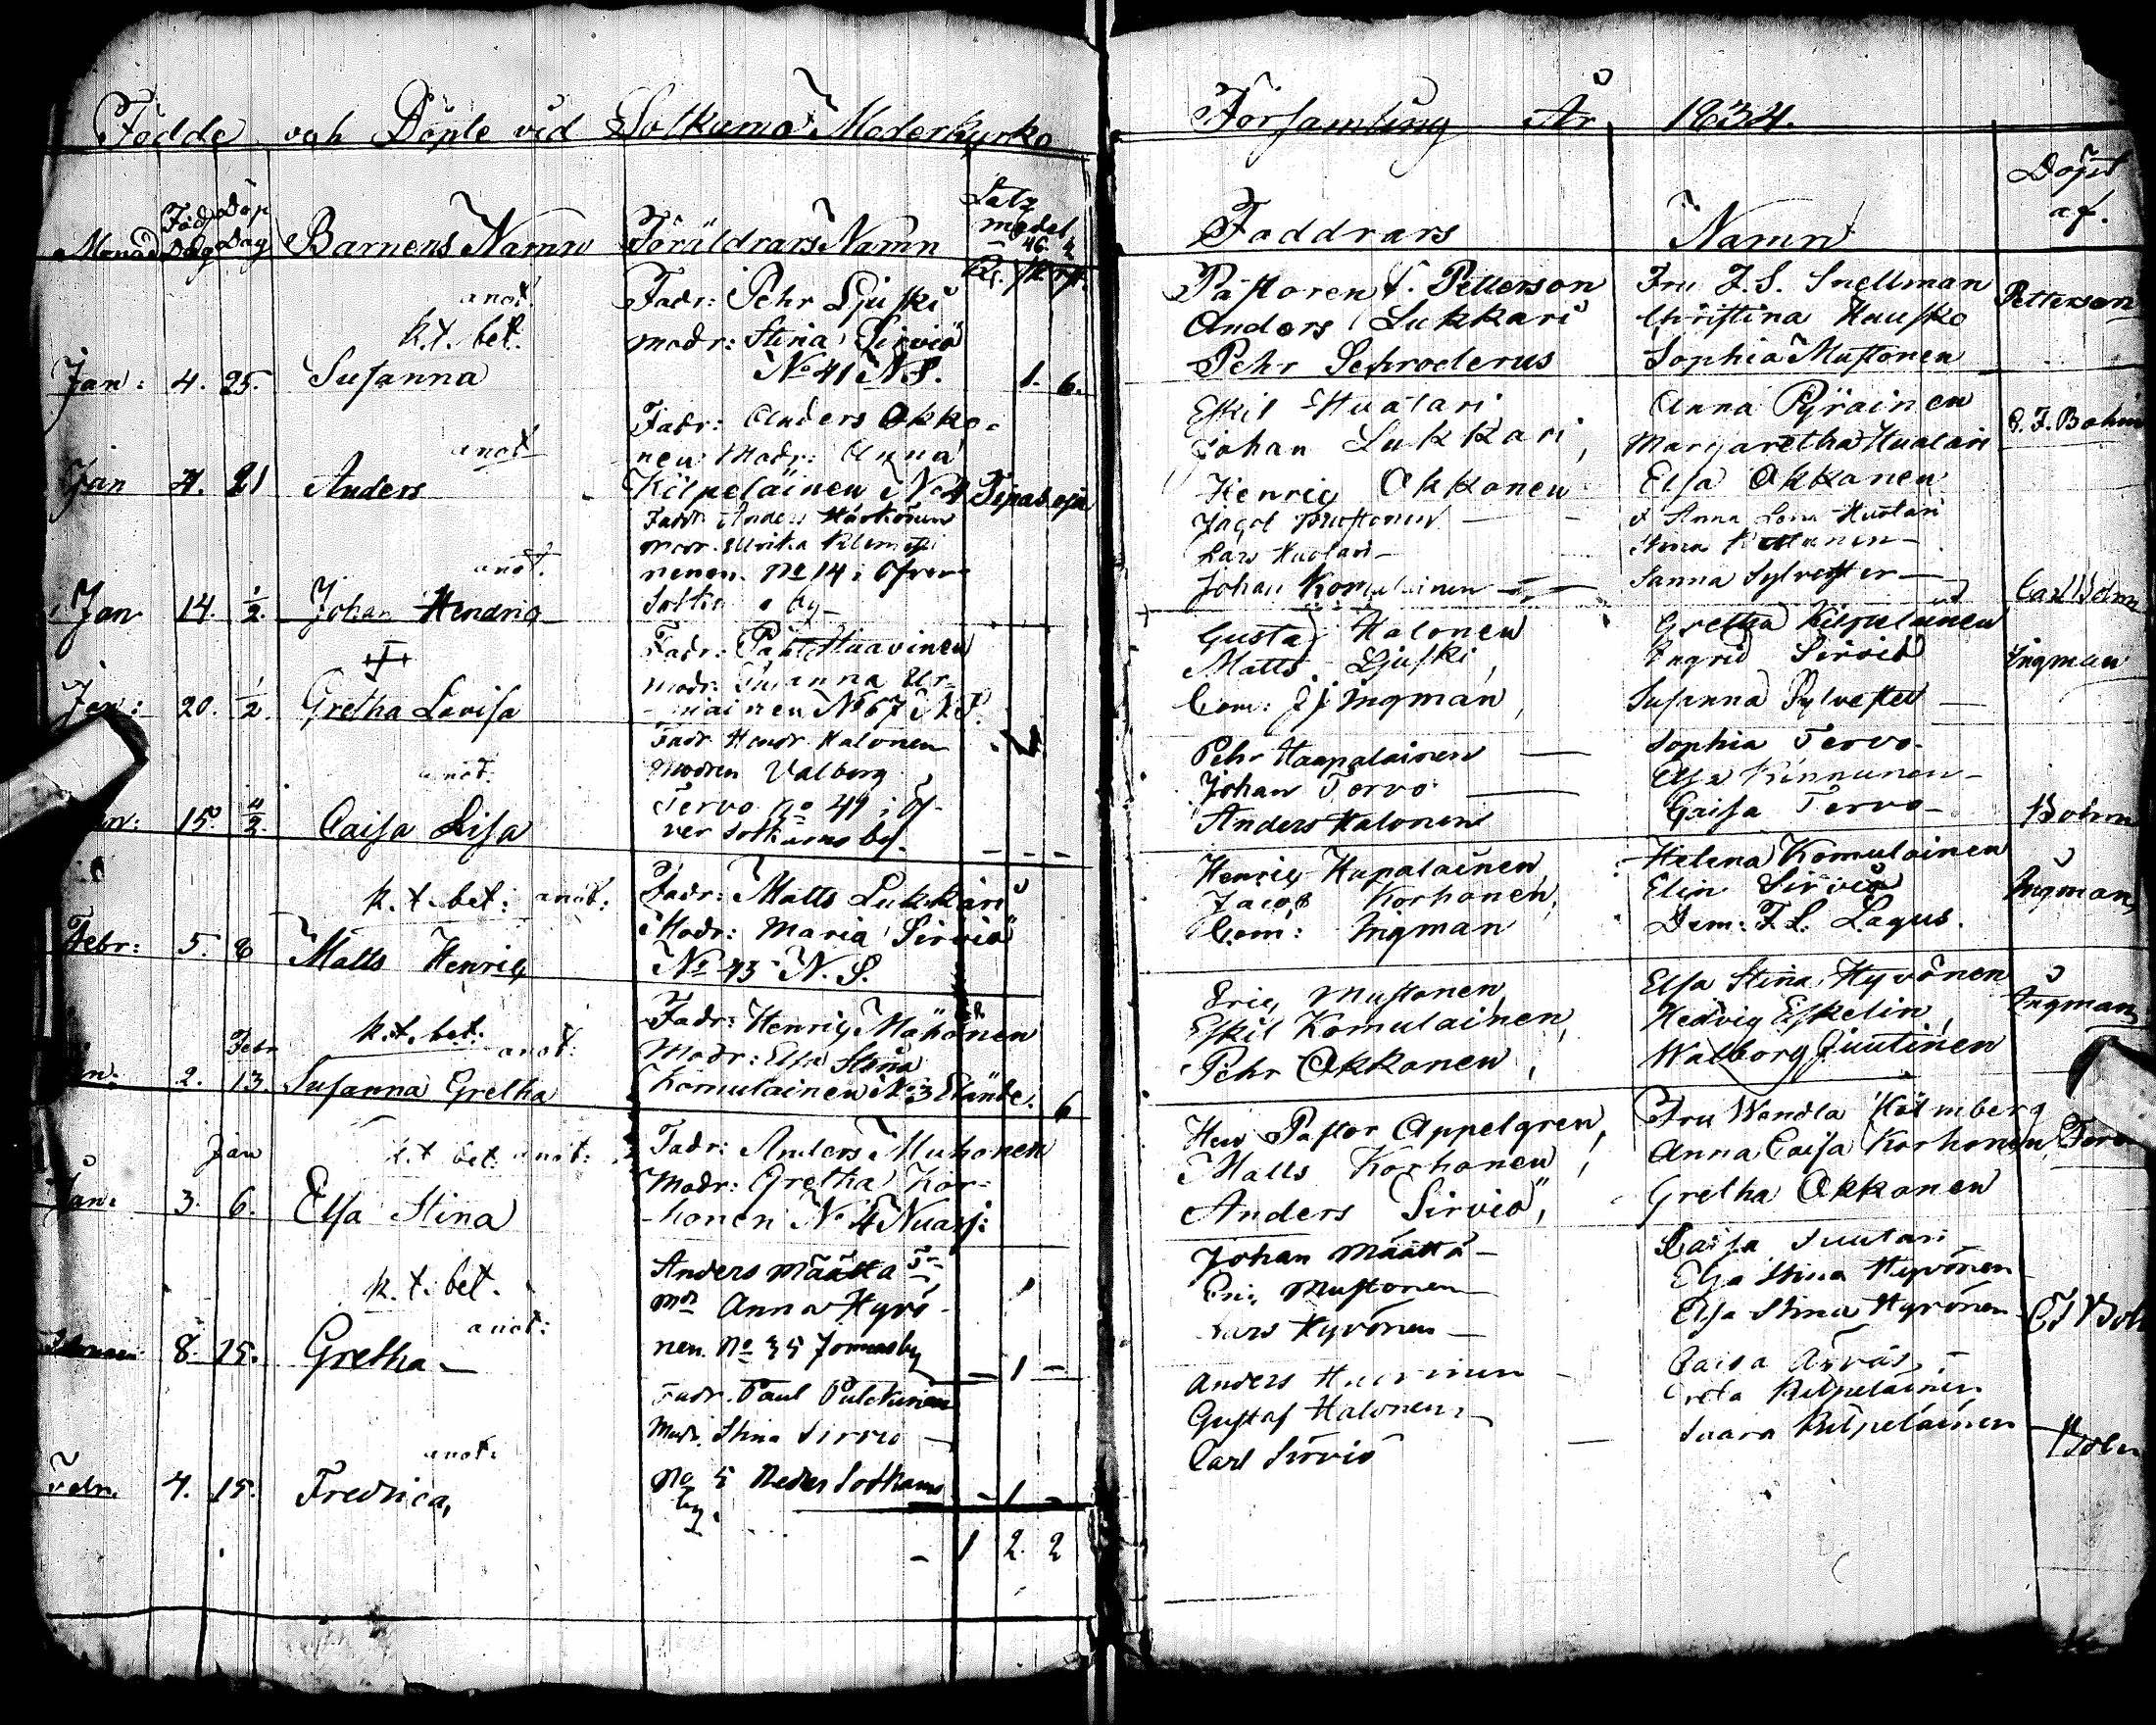 Födde och Döpte vid Sotkamo Moderkyrko
Månad Föd Dag Döp Dag Barnens Namn Föräldrars Namn
anot. Fadr: Pehr Ljuski
k.t. bet. modr: Stina Sirviö
Jan: 4. 25. Susanna No 41 N.S. 1. 6.
Fadr: Anders Okko-
anot nen Modr: Anna
Jan 4. 21 Anders Kilpeläinen No 4 Tipasoja
Fadr Anders Härkönen
anot. nenen. No 14 i Öfver
Jan 14. 1/2. Johan Hendric Sotk by
Fadr: Huovinen
modr: Susanna
Jan: 20. 1/2. Gretha Lovisa No 67 N.S.
Fadr Hendr Halonen
anot. Modren Valborg
Tervo no 49 i Öf-
15. 4/2. Caisa Lisa ver Sotkamo by.
k.t. bet: anot: Fadr: Matts Lukkari
Modr: Maria Sirviö
Febr: 5. 8 Matts Henric No 43 N.S.
k.t. bet: Fadr: Henric Mähönen
Febr anot: Modr: Elsa Stina
2. 13. Susanna Gretha Komulainen No 3 6
Jan k.t. bet: anot: Fadr: Anders Muhonen
Modr: Gretha Kor-
Jan: 3. 6. Elsa Stina honen No 4 Nuasj:
k.t. bet. Anders Määttä Fr
anot: mdr Anna Hyvö-
8. 15. Gretha nen. No 35 Jormasby - 1 -
Fadr. Paul Pulckinen
anot: Modr. Stina Sirviö
Febr. 4. 15. Fredrica, No 5 Neder Sotkamo - 1 -
by.
- 1 2 2
Församling År 1834.
Faddrars Namn Döpt af.
Pastoren Petterson Fru F.S. Snellman Petterson
Anders Lukkari Christina Hausko
Pehr Schroderus Sophia Mustonen
Eskil Huotari Anna Pyräinen
Johan Lukkari, Margaretha Huotari Bohm
Henric Okkonen Elsa Okkonen
Jacob Mustonen Anna Lena Huotari
Lars Huotari Stina
Johan Komulainen Sanna Sylvester Carl Bohm
Gustaf Halonen Gretha Kilpeläinen
Matts Ljuski, Ingrid Sirviö Ingman
Com: Ingman, Susanna Sylvester
Pehr Haapalainen Sophia Tervo
Johan Tervo Elsa Kinnunen
Anders Halonen Caisa Tervo Bohm
Henric Hapalainen, Helena Komulainen
Jacob Korhonen, Elin Sirviö Ingman
Com: Ingman Dem: F.L. Lagus.
Eric Mustonen, Elsa Stina Hyvönen
Eskil Komulainen, Hedvig Eskelin, Ingman
Pehr Okkonen, Walborg Juutinen
Herr Pastor Appelgren, Fru Wendla Holmberg
Matts Korhonen, Anna Caisa Korhonen
Anders Sirviö, Gretha Okkonen
Johan Määttä Caisa Suutari
Eric Mustonen Elsa Stina Hyvönen
Lars Hyvönen Elsa Stina Hyvönen
Anders Caisa
Gustaf Halonen Greta Kilpeläinen
Carl Sirviö Kilpeläinen